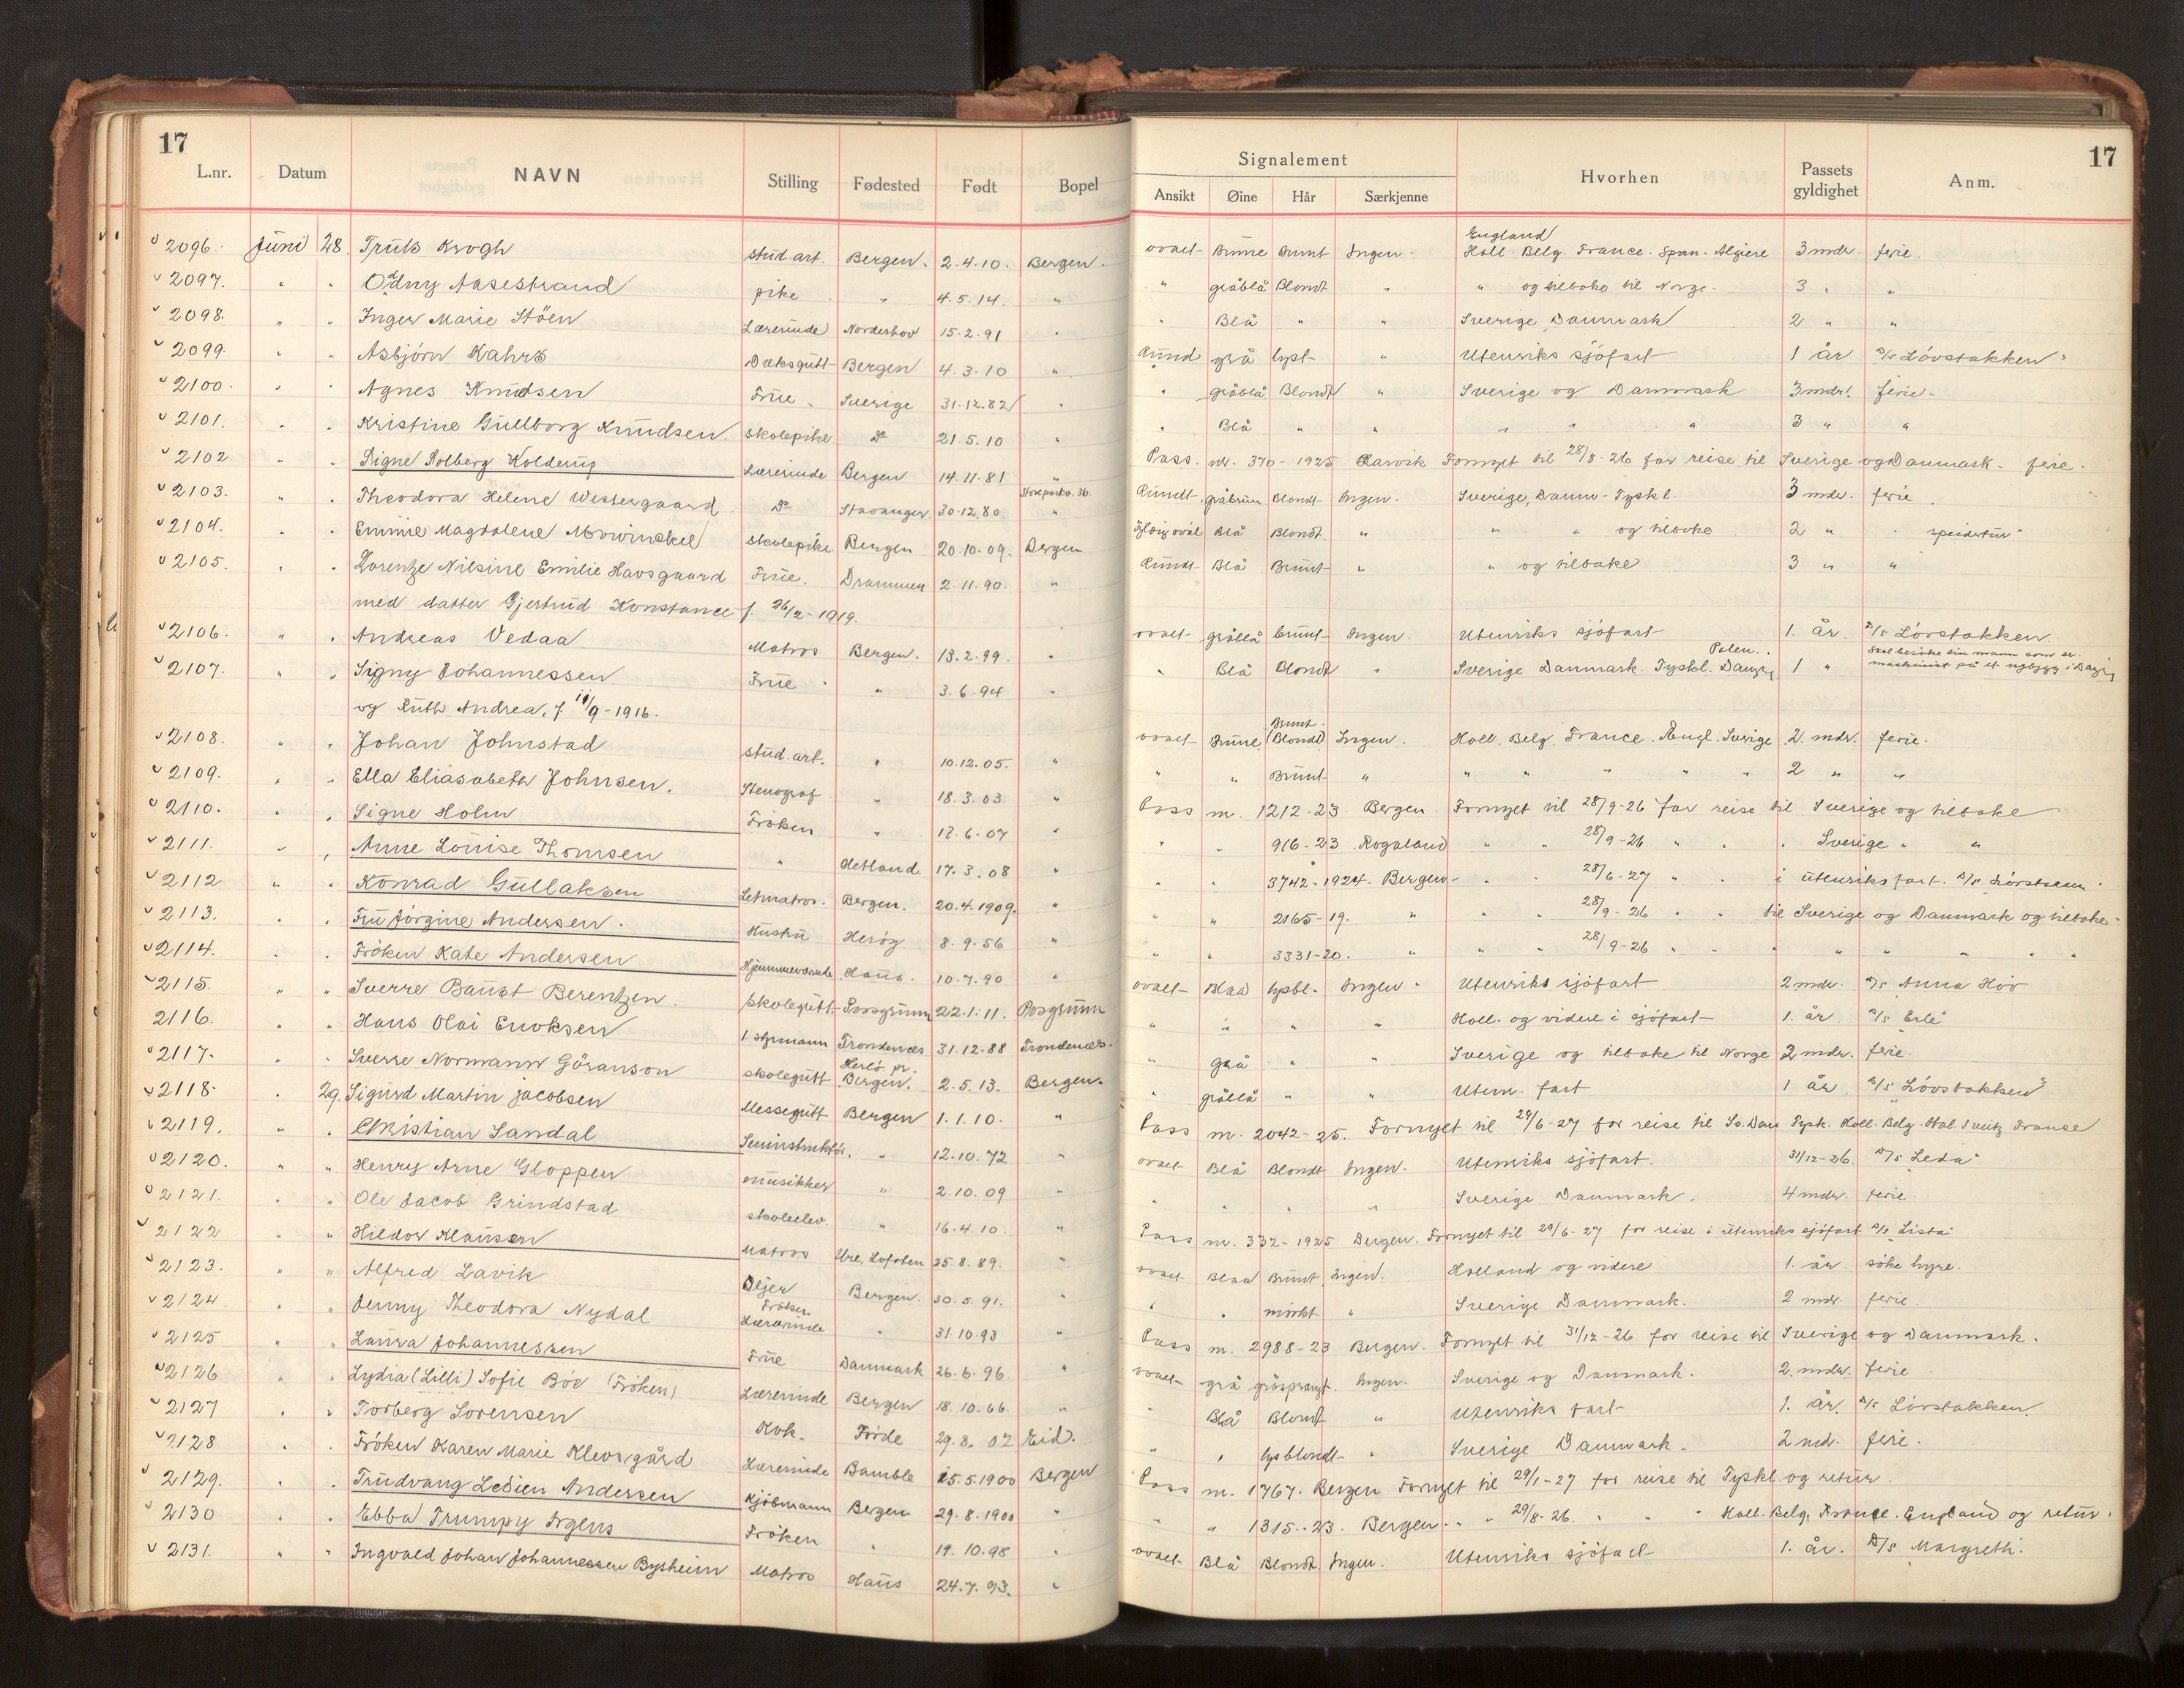 17
L.nr. Datum NAVN Stilling Fødested Født Bopel
Signalement
Ansikt Øine Hår Særkjenne Hvorhen Passets gyldighet Anm.
17
England
2096. Juni 28. Truls Krogh stud. art. Bergen. 2.4.10. Bergen. ovalt Brune Brunt Ingen - Holl. Belg. France. Span. Algiere 3 mdr. ferie.
2097. " " Odny Aasestrand pike " 4.5.14. " " gråblå Blondt " " og tilbake til Norge. 3 " "
2098. " " Inger Marie Stöen Lærerinde Norderhov 15.2.91 " " Blå " " Sverige Danmark 2 " "
2099. " " Asbjörn Kahrs Dæksgutt Bergen 4.3.10 " Rund grå lyst " Utenriks sjöfart 1 år D/S Lövstakken"
2100. " " Agnes Knudsen Frue Sverige 31.12.82 " " gråblå Blondt " Sverige og Danmark 3 mdr. ferie -
2101. " " Kristine Gullborg Knudsen. skolepike Do 21.5.10 " " Blå " " " " " 3 " "
2102 " " Signe Solberg Kolderup Lærerinde Bergen 14.11.81 " Pass. nr. 370 - 1925 Larvik Fornyet til 28/8-26 for reise til Sverige og Danmark - ferie.
2103. " " Theodora Helene Westergaard Do Stavanger 30.12.80. " Rundt gråbrun Blondt Ingen. Sverige, Danm - Tyskl. 3 mdr. ferie.
2104. " " Emmie Magdalene Mowinckel skolepike Bergen 20.10.09. Bergen oval Blå Blondt " " " og tilbake 2 " " speidertur"
2105. " " Lorentze Nilsine Emilie Havsgaard Frue. Drammen 2.11.90. " Rundt Blå Brunt " " og tilbake 3 " "
med datter Gjertrud Konstance f. 26/2-1919.
2106. " " Andreas Vedaa Matros Bergen. 13.2.99. " ovalt gråblå brunt Ingen. Utenriks sjöfart 1. år. D/S Lövstakken.
Polen.
2107. " " Signy Johannessen Frue " 3.6.94 " " Blå Blondt " Sverige Danmark. Tyskl. Danzig 1 " Skal besöke sin mann som er maskinist på et nybygg i Danzig
og Ruth Andrea, f. 10/9-1916.
2108. " " Johan Johnstad stud. art. " 10.12.05. " ovalt brune brunt (Blondt) Ingen. Holl. Belg. France. Engl. Sverige 2. mdr. ferie.
2109. " " Ella Eliasabeth Johnsen. Stenograf " 18.3.03. " " " Brunt " " " " " " 2 " "
2110. " " Signe Holm Fröken " 17.6.07 " Pass nr. 1212-23. Bergen. Fornyet til 28/9-26 for reise til Sverige og tilbake
2111. " " Anne Louise Thomsen " Hetland 17.3.08 " " " 916-23 Rogaland " " 28/9-26 " " " Sverige " "
2112 " " Konrad Gullaksen Letmatros. Bergen. 20.4.1909. " " " 3742-1924. Bergen - " " 28/6-27 " " i utenriksfart.
2113. " " Fru Jörgine Andersen. Hustru Heröy 8.9.56 " " " 2165-19. " " " 28/9-26 " " til Sverige og Danmark og tilbake."
2114. " " Fröken Kate Andersen Hjemmeværende Haus. 10.7.90 " " " 3331-20. " " " 28/9-26 " " " " " " "
2115. " " Sverre Baust Berentzen. Skolegutt Porsgrunn 22.1.11. Porsgrunn ovalt Blaa lysbl. Ingen - Utenriks sjöfart 2 mdr. D/S Anna Hov
2116. " " Hans Olai Enoksen 1. styrmann Trondenes 31.12.88 Trondenes. " " " " Holl. og videre i sjöfart 1. år. D/S Erle"
2117. " " Sverre Normann Göranson skolegutt Herlö pr. Bergen. 2.5.13. Bergen. " grå " " Sverige og tilbake til Norge 2 mdr. ferie.
2118. " 29. Sigurd Martin Jacobsen Messegutt Bergen 1.1.10. " " gråblå " " Utenr. fart 1 år D/S Lövstakken"
2119. " " Christian Sandal " 12.10.72 " Pass nr. 2042-25. Fornyet til 29/6-27 for reise til Sv. Dan Tysk. Holl. Belg. Ital. Sveitz Franse
2120. " " Henry Arne Gloppen musikker " 2.10.09 " ovalt Blå Blondt Ingen. Utenriks sjöfart. 31/12-26. D/S Leda"
2121. " " Ole Jacob Grindstad skoleelev. " 16.4.10. " " " " " Sverige Danmark. 4 mdr. ferie.
2122 " " Hildor Klausen Matros Ure, Lofoten 25.8.89. " Pass nr. 332-1925 Bergen. Fornyet til 29/6-27 for reise i utenriks sjöfart D/S Lista"
2123. " " Alfred Lavik Oljer Bergen. 30.5.91. " ovalt Blaa Brunt Ingen. Holland og videre 1. år. söke hyre.
2124. " " Jenny Theodora Nydal Fröken Lærerinde " 31.10.93 " " " mörkt " Sverige Danmark. 2 mdr. ferie.
2125 " " Laura Johannessen Frue Danmark 26.6.96. " Pass nr. 2988-23 Bergen. Fornyet til 31/12-26 for reise til Sverige og Danmark.
2126 " " Lydia (Lilli) Sofie Böe (Fröken) Lærerinde Bergen 18.10.66. " ovalt grå gråsprængt. Ingen. Sverige og Danmark. 2. mdr. ferie
2127 " " Torberg Sorensen Kok - Förde 29.8.02 Eid. " Blå Blondt " Utenriks fart 1. år. D/S Lövstakken.
2128 " " Fröken Karen Marie Kleorsgård Lærerinde Bamble 15.5.1900 Bergen " " lysblondt " Sverige Danmark - 2 md. ferie.
2129. " " Trudvang Ledien Andersen Kjöbmann Bergen 29.8.1900 " Pass nr. 1767. Bergen Fornyet til 29/1-27 for reise til Tyskl. og retur.
2130 " " Ebba Trumpy Irgens Fröken " 19.10.98 " " " 1315-23. Bergen. " " 29/8-26. " " " Holl. Belg. France. England og retur.
2131. " " Ingvald Johan Johannessen Bysheim Matros Haus 24.7.93. " ovalt Blå Blondt Ingen. Utenriks sjöfart 1. år. D/S Margreth.